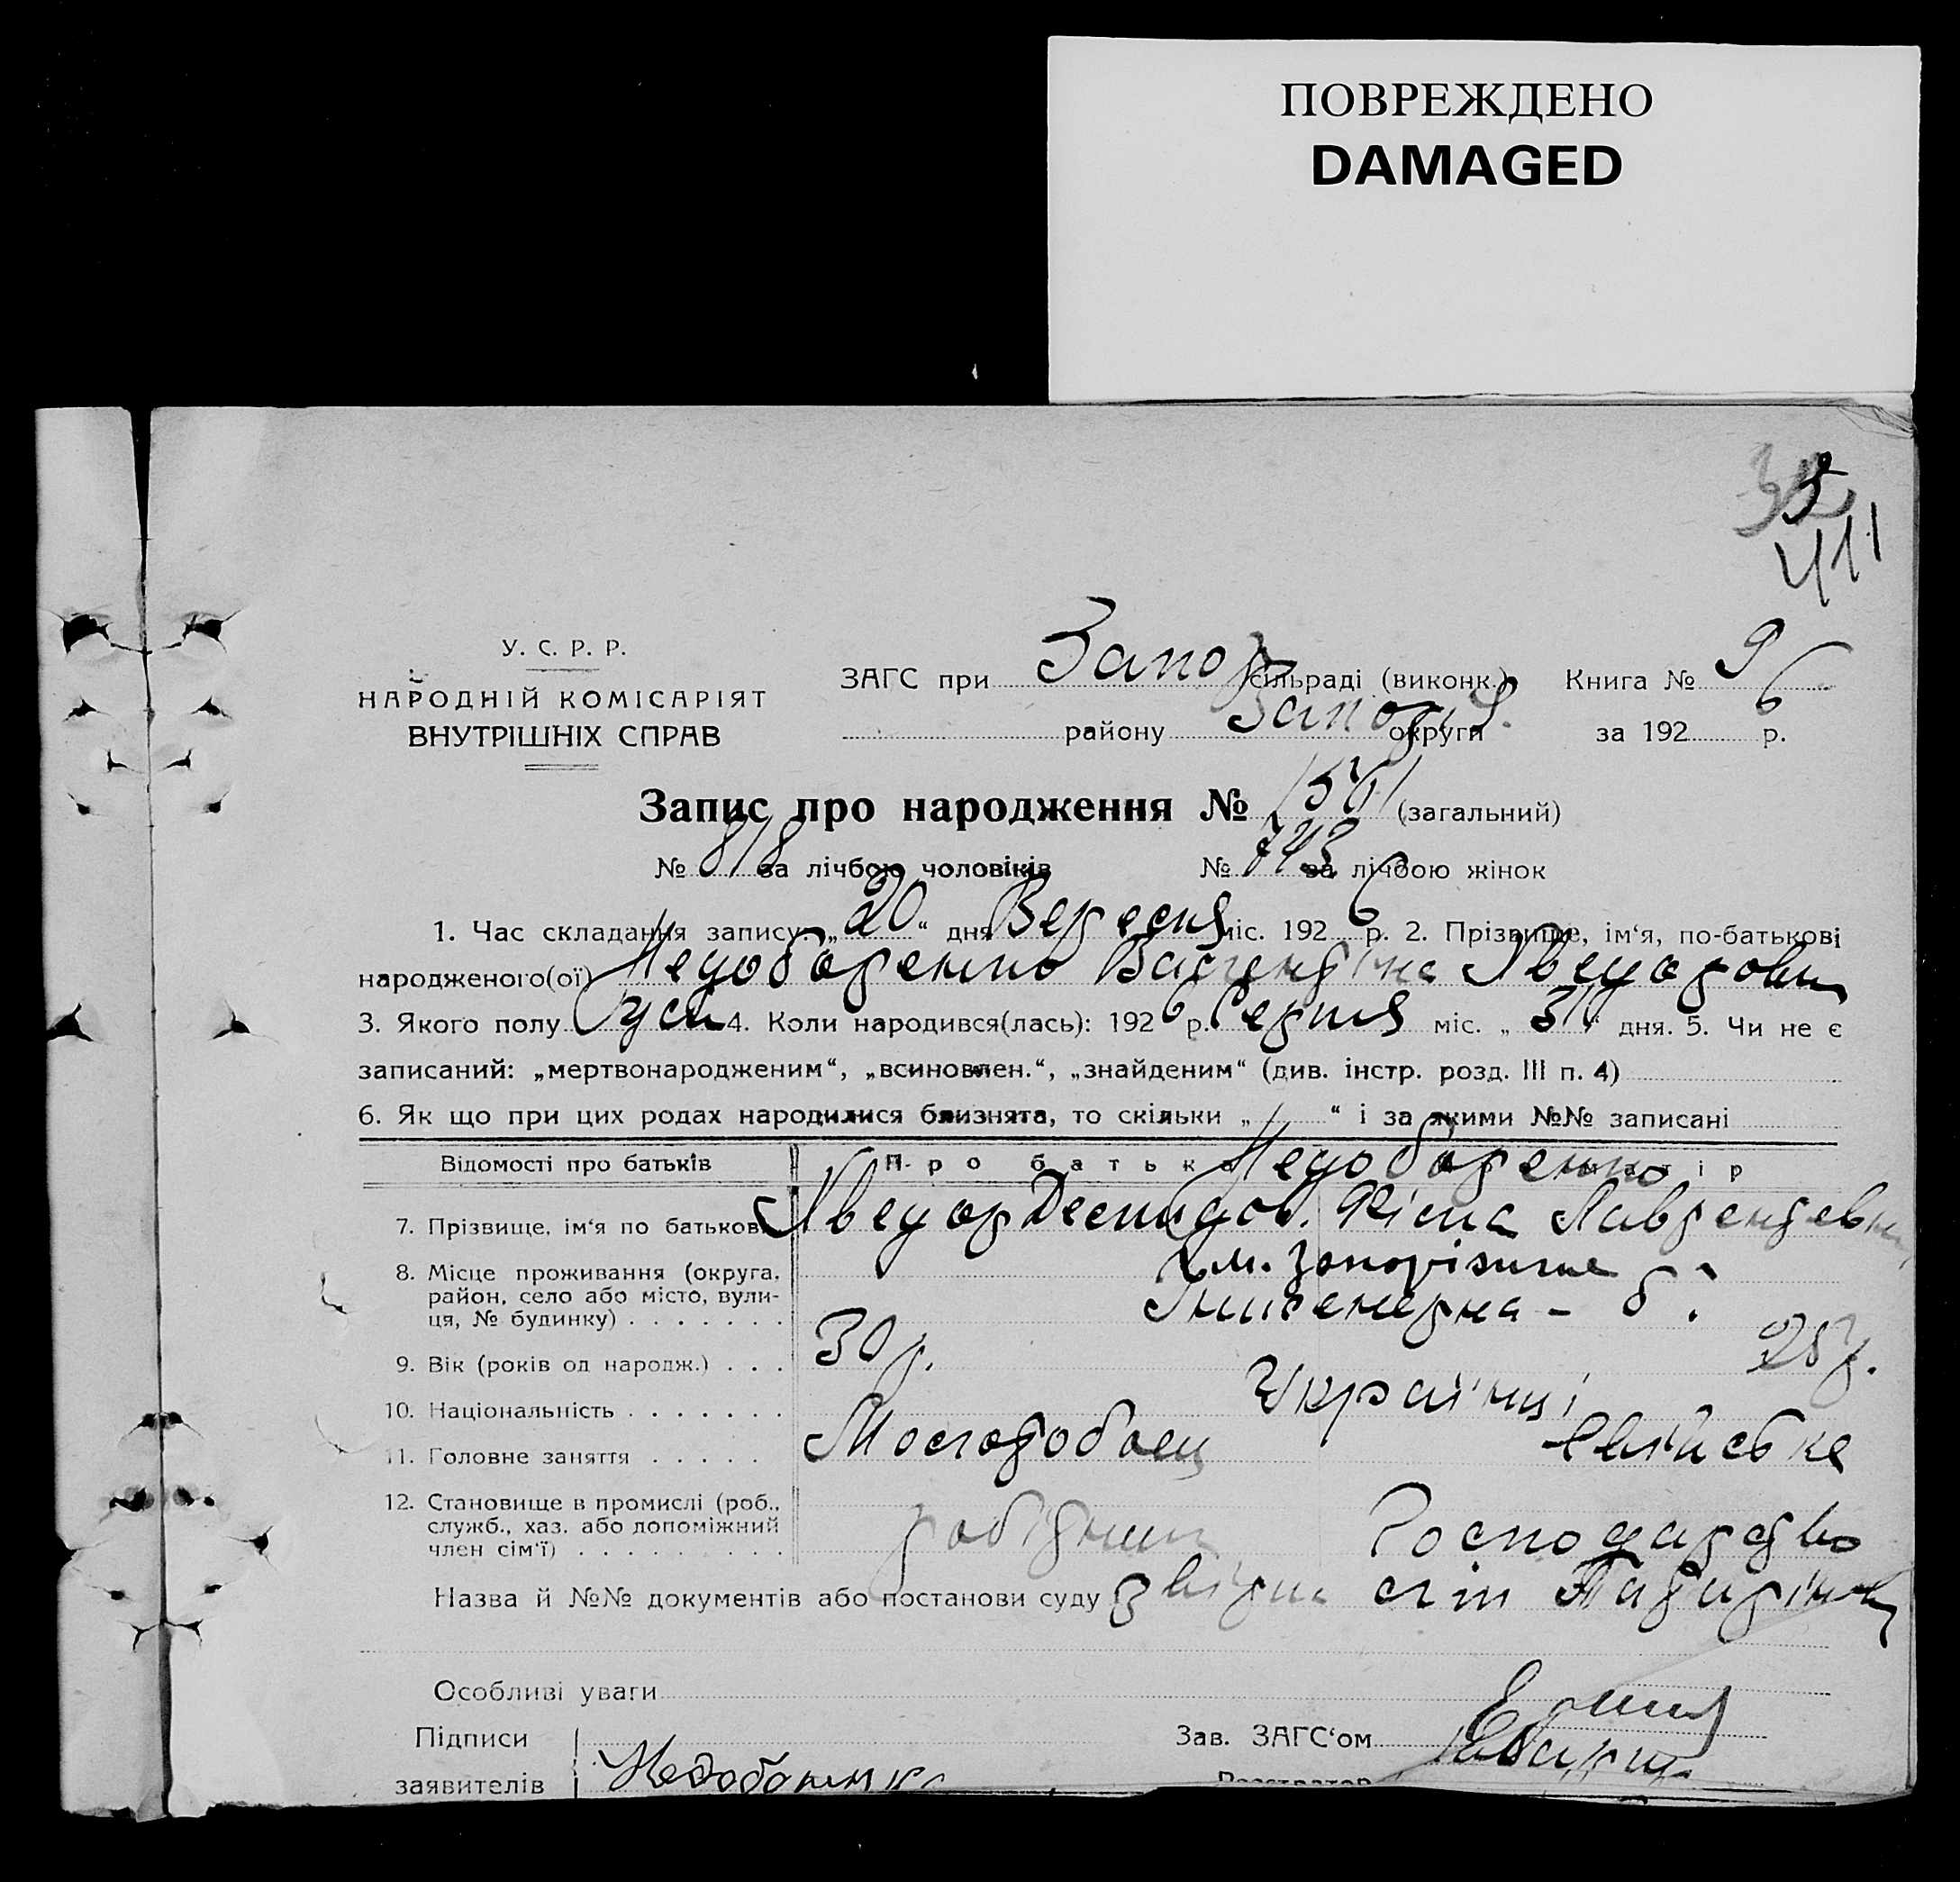 ПОВРЕЖДЕНО
DAMAGED
411
У. С. Р. Р.
НАРОДНІЙ КОМІСАРІЯТ
ВНУТРІШНІХ СПРАВ
ЗАГС при Запор сільраді (виконк.) Книга № 9
району Запор округи за 192 6 р.
Запис про народження № 1561 (загальний)
№ 818 за лічбою чоловіків № 743 за лічбою жінок
1. Час складання запису: „ 20 “ дня Вересня міс. 192 6 р. 2. Прізвище, ім‘я, по-батькові
народженого(ої)
3. Якого полу 4. Коли народився(лась): 192 6 р. Серпня міс. „ 31 “ дня. 5. Чи не є
записаний: „мертвонародженим“, „всиновлен.“, „знайденим“ (див. інстр. розд. III п. 4)
6. Як що при цих родах народилися близнята, то скільки „ “ і за якими №№ записані
Відомості про батьків Про батька Недоборенко матір
7. Прізвище, ім‘я по батькові
8. Місце проживання (округа, м. Запоріжжє
район, село або місто, вули- Інженерна - 6
ця, № будинку)
9. Вік (років од народж.) 30 р. 28 р.
10. Національність Українці
11. Головне заняття
12. Становище в промислі (роб., робітник Господарство
служб., хаз. або допоміжний
член сім‘ї)
Назва й №№ документів або постанови суду
Особливі уваги
Підписи Зав. ЗАГС‘ом
заявителів Реєстратор